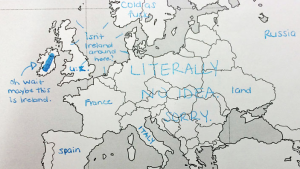 Cold as
fuck
Isn't
Ireland
around
here?
Russia
U.K.
Oh wait
maybe this
is Ireland.
LITERALLY
NO IDEA
SORRY.
land
France
Spain
ITALY